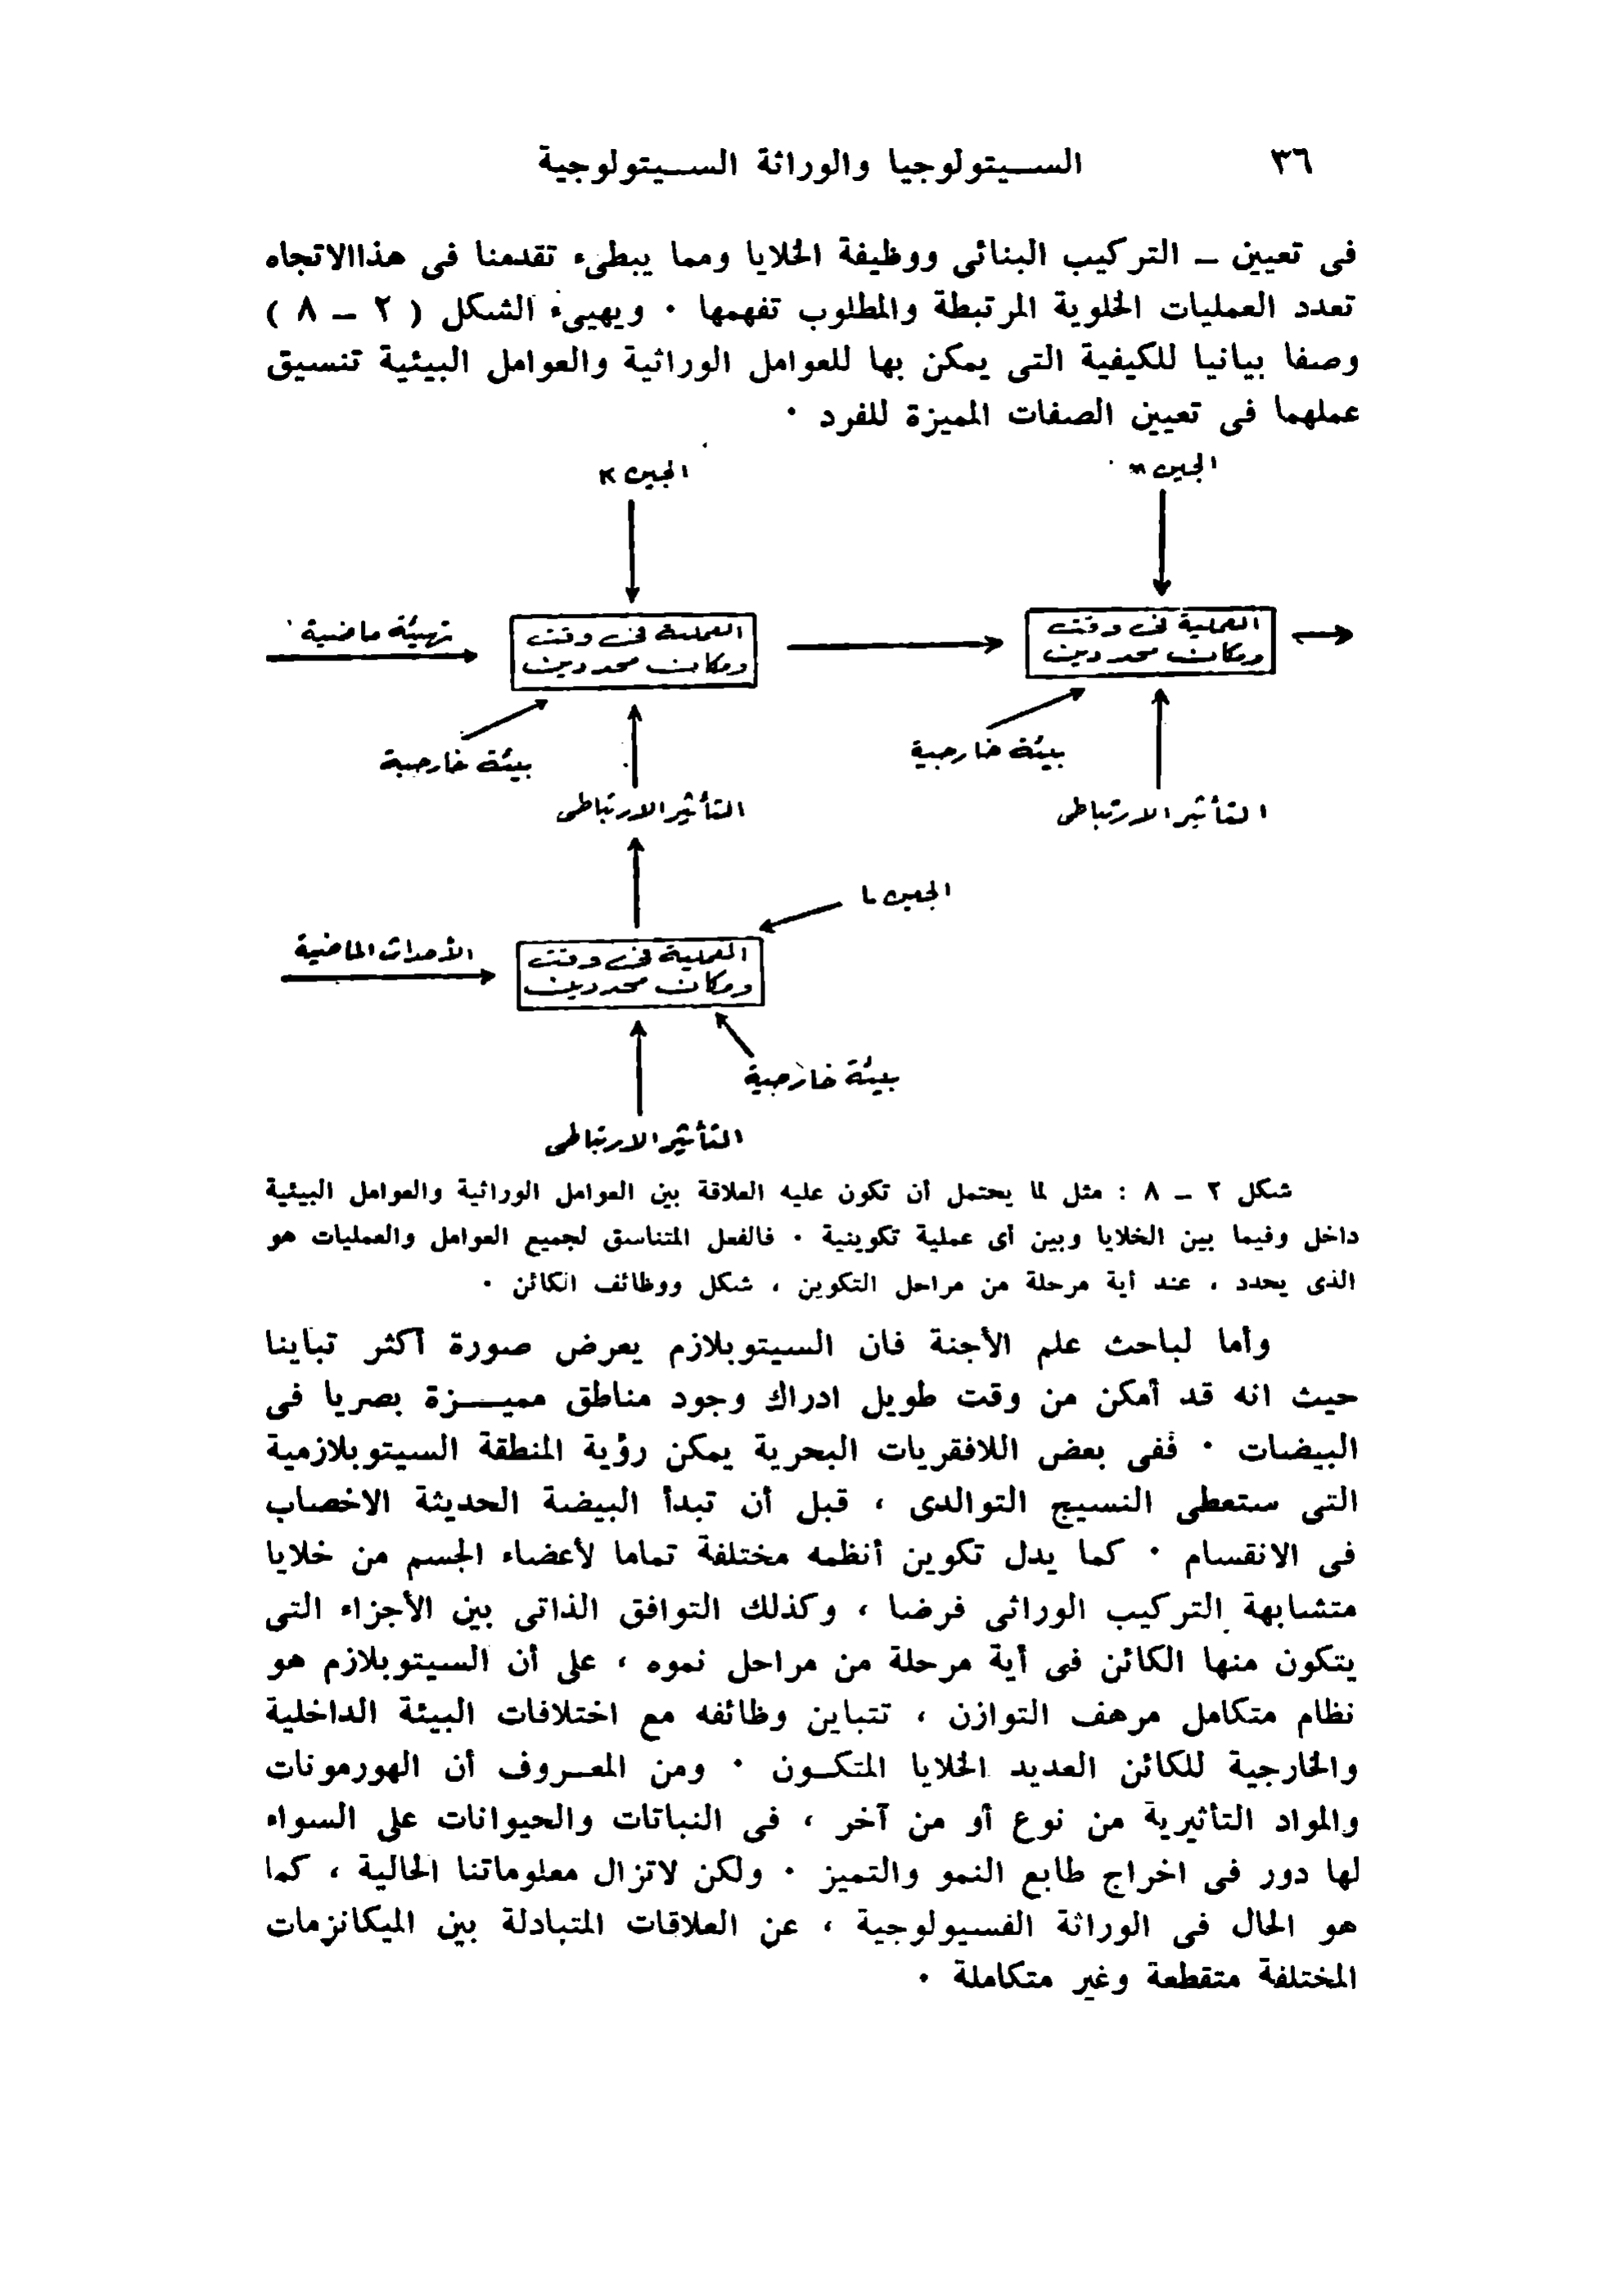 ٣٦
السيتولوجيا والوراثة السيتولوجية
فى تعيين ــ التركيب البنائى ووظيفة الخلايا ومما يبطىء تقدمنا فى هذاالاتجاه
تعدد العمليات الخلوية المرتبطة والمطلوب تفهمها ٠ ويهيىء الشكل ( ٢ ــ ٨ )
وصفا بيانيا للكيفية التى يمكن بها للعوامل الوراثية والعوامل البيئية تنسيق
عملهما فى تعيين الصفات المميزة للفرد ٠
الجين m
الجين K
العملية فى وقت
ومكان محددين
العملية فى وقت
ومكان محددين
تهيئة ماضية
بيئة خارجية
بيئة خارجية
التأثير الارتباطى
التأثير الارتباطى
الجين L
الأحداث الماضية
العملية فى وقت
ومكان محددين
بيئة خارجية
التأثير الارتباطى
شكل ٢ ــ ٨ : مثل لما يحتمل أن تكون عليه العلاقة بين العوامل الوراثية والعوامل البيئية
داخل وفيما بين الخلايا وبين أى عملية تكوينية ٠ فالفعل المتناسق لجميع العوامل والعمليات هو
الذى يحدد ، عند أية مرحلة من مراحل التكوين ، شكل ووظائف الكائن ٠
وأما لباحث علم الأجنة فان السيتوبلازم يعرض صورة أكثر تباينا
حيث انه قد أمكن من وقت طويل ادراك وجود مناطق مميزة بصريا فى
البيضات ٠ ففى بعض اللافقريات البحرية يمكن رؤية المنطقة السيتوبلازمية
التى ستعطى النسيج التوالدى ، قبل أن تبدأ البيضة الحديثة الاخصاب
فى الانقسام ٠ كما يدل تكوين أنظمه مختلفة تماما لأعضاء الجسم من خلايا
متشابهة التركيب الوراثى فرضا ، وكذلك التوافق الذاتى بين الأجزاء التى
يتكون منها الكائن فى أية مرحلة من مراحل نموه ، على أن السيتوبلازم هو
نظام متكامل مرهف التوازن ، تتباين وظائفه مع اختلافات البيئة الداخلية
والخارجية للكائن العديد الخلايا المتكون ٠ ومن المعروف أن الهورمونات
والمواد التأثيرية من نوع أو من آخر ، فى النباتات والحيوانات على السواء
لها دور فى اخراج طابع النمو والتميز ٠ ولكن لاتزال معلوماتنا الحالية ، كما
هو الحال فى الوراثة الفسيولوجية ، عن العلاقات المتبادلة بين الميكانزمات
المختلفة متقطعة وغير متكاملة ٠